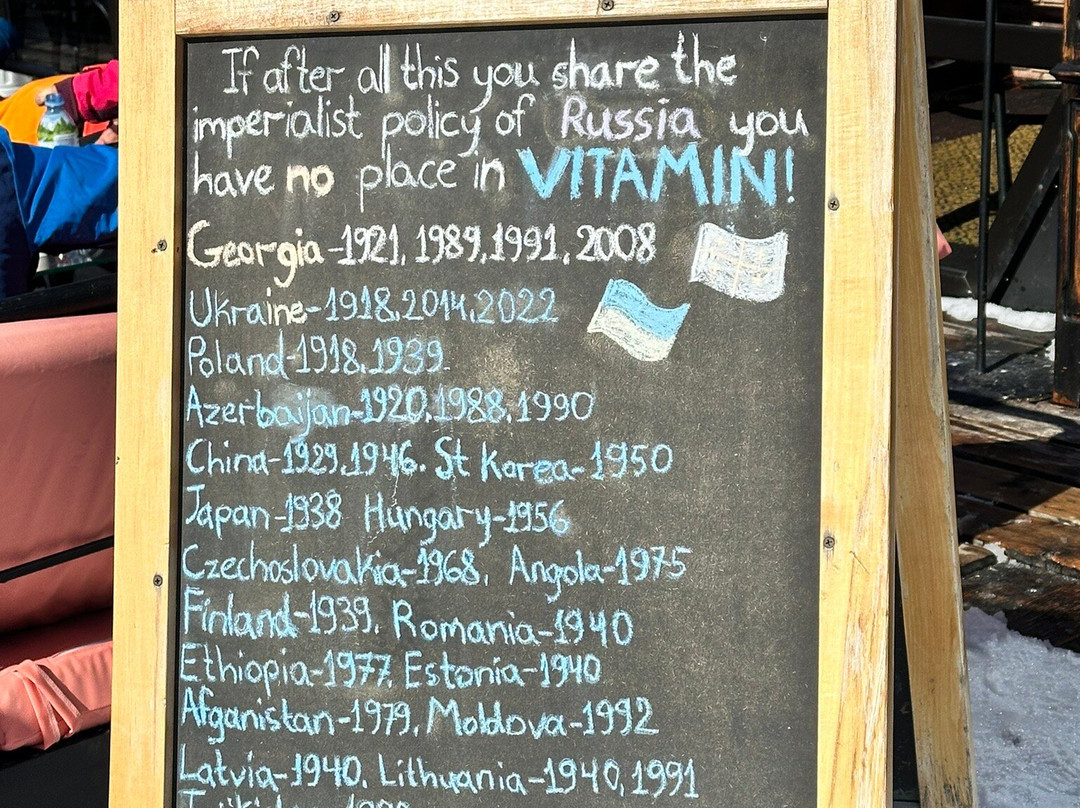 If after all this you share the
imperialist policy of Russia you
have no place in VITAMIN!
Georgia-1921, 1989,1991,2008
Ukraine-1918,2014,2022
Poland-1918,1939
Azerbaijan-1920,1988,1990
China-1929,1946. St Korea-1950
Japan-1938 Hungary-1956
Czechoslovakia-1968, Angola-1975
Finland-1939, Romania-1940
Ethiopia-1977, Estonia-1940
Afganistan-1979, Moldova-1992
Latvia-1940, Lithuania-1940,1991